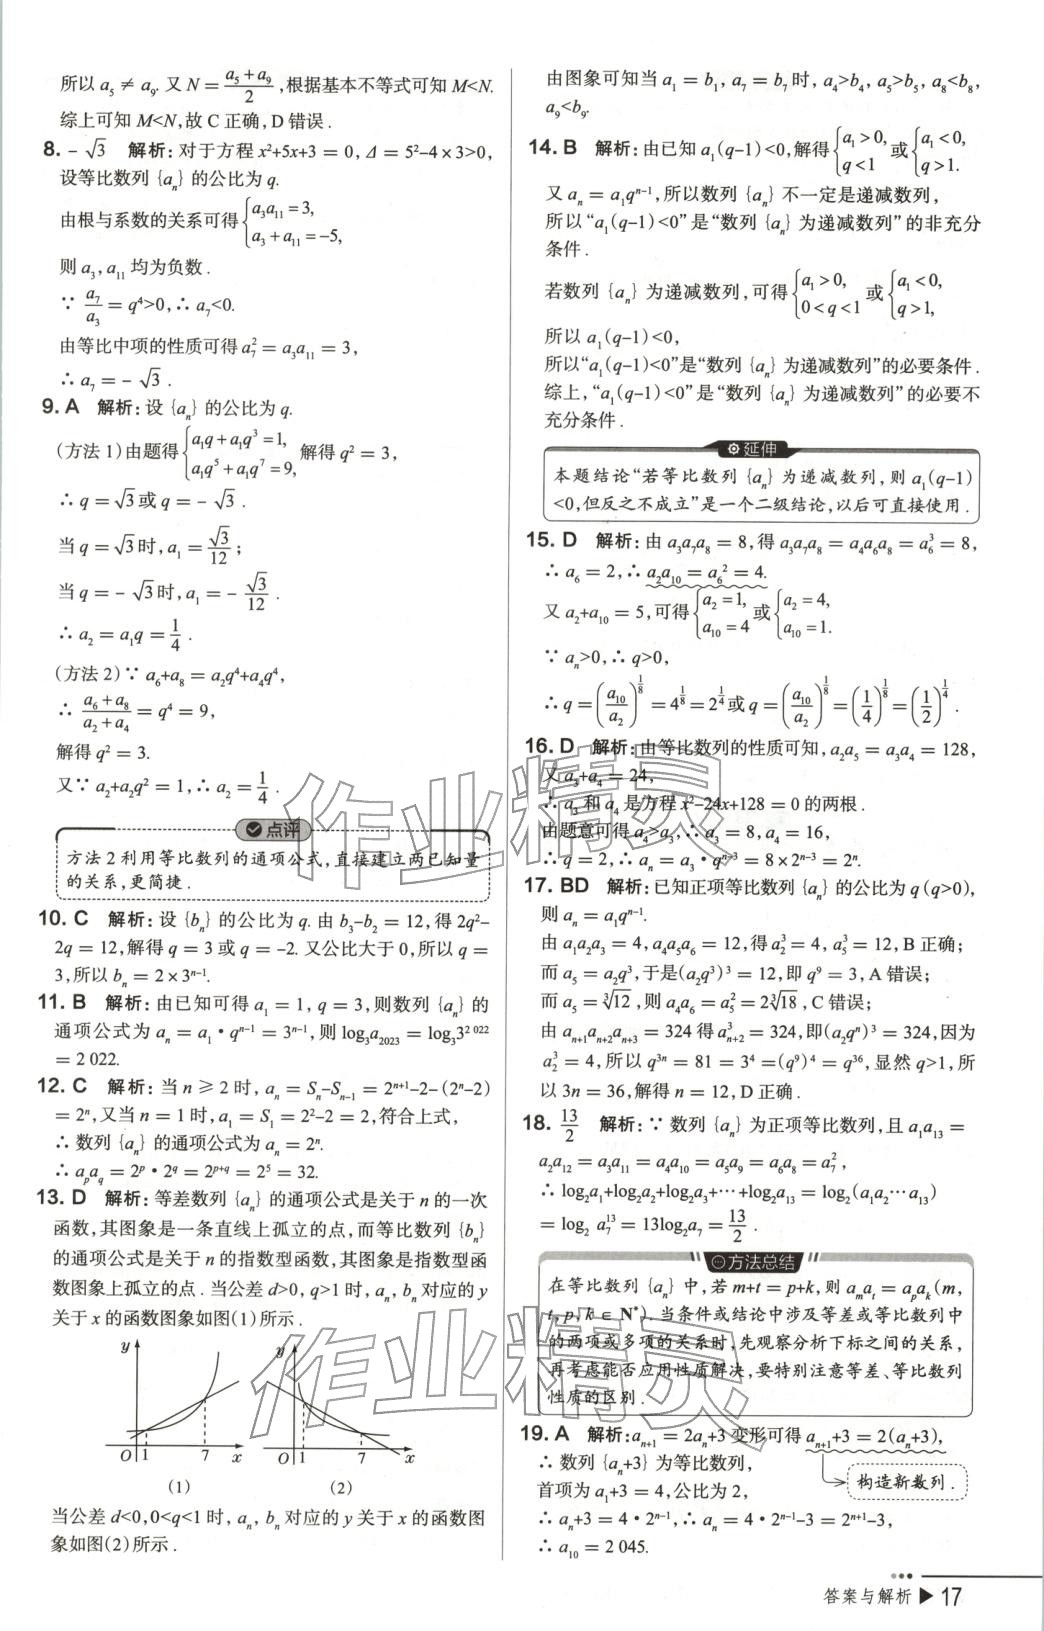 所以 a₅ ≠ a₉. 又 N = (a₅+a₉)/2, 根据基本不等式可知 M<N.
综上可知 M<N, 故 C 正确, D 错误.
8. -√3 解析: 对于方程 x²+5x+3 = 0, Δ = 5²-4×3>0,
设等比数列 {aₙ} 的公比为 q.
由根与系数的关系可得 {a₃a₁₁ = 3, a₃+a₁₁ = -5,
则 a₃, a₁₁ 均为负数.
∵ a₇/a₃ = q⁴>0, ∴ a₇<0.
由等比中项的性质可得 a₇² = a₃a₁₁ = 3,
∴ a₇ = -√3.
9. A 解析: 设 {aₙ} 的公比为 q.
(方法 1) 由题得 {a₁q+a₁q³ = 1, a₁q⁵+a₁q⁷ = 9, 解得 q² = 3,
∴ q = √3 或 q = -√3.
当 q = √3 时, a₁ = √3/12;
当 q = -√3 时, a₁ = -√3/12.
∴ a₂ = a₁q = 1/4.
(方法 2) ∵ a₆+a₈ = a₂q⁴+a₄q⁴,
∴ (a₆+a₈)/(a₂+a₄) = q⁴ = 9,
解得 q² = 3.
又∵ a₂+a₂q² = 1, ∴ a₂ = 1/4.
点评
方法 2 利用等比数列的通项公式, 直接建立两已知量
的关系, 更简捷.
10. C 解析: 设 {bₙ} 的公比为 q. 由 b₃-b₂ = 12, 得 2q²-
2q = 12, 解得 q = 3 或 q = -2. 又公比大于 0, 所以 q =
3, 所以 bₙ = 2×3ⁿ⁻¹.
11. B 解析: 由已知可得 a₁ = 1, q = 3, 则数列 {aₙ} 的
通项公式为 aₙ = a₁·qⁿ⁻¹ = 3ⁿ⁻¹, 则 log₃a₂₀₂₃ = log₃3²⁰²²
= 2 022.
12. C 解析: 当 n ≥ 2 时, aₙ = Sₙ-Sₙ₋₁ = 2ⁿ⁺¹-2-(2ⁿ-2)
= 2ⁿ, 又当 n = 1 时, a₁ = S₁ = 2²-2 = 2, 符合上式,
∴ 数列 {aₙ} 的通项公式为 aₙ = 2ⁿ.
∴ a_p a_q = 2^p·2^q = 2^(p+q) = 2⁵ = 32.
13. D 解析: 等差数列 {aₙ} 的通项公式是关于 n 的一次
函数, 其图象是一条直线上孤立的点, 而等比数列 {bₙ}
的通项公式是关于 n 的指数型函数, 其图象是指数型函
数图象上孤立的点. 当公差 d>0, q>1 时, aₙ, bₙ 对应的 y
关于 x 的函数图象如图(1)所示.
y y
O 1 7 x O 1 7 x
(1) (2)
当公差 d<0, 0<q<1 时, aₙ, bₙ 对应的 y 关于 x 的函数图
象如图(2)所示.
由图象可知当 a₁ = b₁, a₇ = b₇ 时, a₄>b₄, a₅>b₅, a₈<b₈,
a₉<b₉.
14. B 解析: 由已知 a₁(q-1)<0, 解得 {a₁>0, q<1 或 {a₁<0, q>1.
又 aₙ = a₁qⁿ⁻¹, 所以数列 {aₙ} 不一定是递减数列,
所以 “a₁(q-1)<0” 是 “数列 {aₙ} 为递减数列” 的非充分
条件.
若数列 {aₙ} 为递减数列, 可得 {a₁>0, 0<q<1 或 {a₁<0, q>1,
所以 a₁(q-1)<0,
所以“a₁(q-1)<0”是“数列 {aₙ} 为递减数列”的必要条件.
综上, “a₁(q-1)<0” 是 “数列 {aₙ} 为递减数列” 的必要不
充分条件.
延伸
本题结论“若等比数列 {aₙ} 为递减数列, 则 a₁(q-1)
<0, 但反之不成立”是一个二级结论, 以后可直接使用.
15. D 解析: 由 a₃a₇a₈ = 8, 得 a₃a₇a₈ = a₄a₆a₈ = a₆³ = 8,
∴ a₆ = 2, ∴ a₂a₁₀ = a₆² = 4.
又 a₂+a₁₀ = 5, 可得 {a₂ = 1, a₁₀ = 4 或 {a₂ = 4, a₁₀ = 1.
∵ aₙ>0, ∴ q>0,
∴ q = (a₁₀/a₂)^(1/8) = 4^(1/8) = 2^(1/4) 或 q = (a₁₀/a₂)^(1/8) = (1/4)^(1/8) = (1/2)^(1/4).
16. D 解析: 由等比数列的性质可知, a₂a₅ = a₃a₄ = 128,
又 a₃+a₄ = 24,
∴ a₃ 和 a₄ 是方程 x²-24x+128 = 0 的两根.
由题意可得 a₄>a₃, ∴ a₃ = 8, a₄ = 16,
∴ q = 2, ∴ aₙ = a₃·qⁿ⁻³ = 8×2ⁿ⁻³ = 2ⁿ.
17. BD 解析: 已知正项等比数列 {aₙ} 的公比为 q (q>0),
则 aₙ = a₁qⁿ⁻¹.
由 a₁a₂a₃ = 4, a₄a₅a₆ = 12, 得 a₂³ = 4, a₅³ = 12, B 正确;
而 a₅ = a₂q³, 于是 (a₂q³)³ = 12, 即 q⁹ = 3, A 错误;
而 a₅ = ∛12, 则 a₄a₆ = a₅² = 2∛18, C 错误;
由 aₙ₊₁aₙ₊₂aₙ₊₃ = 324 得 aₙ₊₂³ = 324, 即 (a₂qⁿ)³ = 324, 因为
a₂³ = 4, 所以 q³ⁿ = 81 = 3⁴ = (q⁹)⁴ = q³⁶, 显然 q>1, 所
以 3n = 36, 解得 n = 12, D 正确.
18. 13/2 解析: ∵ 数列 {aₙ} 为正项等比数列, 且 a₁a₁₃ =
a₂a₁₂ = a₃a₁₁ = a₄a₁₀ = a₅a₉ = a₆a₈ = a₇²,
∴ log₂a₁+log₂a₂+log₂a₃+…+log₂a₁₃ = log₂(a₁a₂…a₁₃)
= log₂ a₇¹³ = 13log₂a₇ = 13/2.
方法总结
在等比数列 {aₙ} 中, 若 m+t = p+k, 则 aₘaₜ = aₚaₖ (m,
t, p, k ∈ N*). 当条件或结论中涉及等差或等比数列中
的两项或多项的关系时, 先观察分析下标之间的关系,
再考虑能否应用性质解决, 要特别注意等差、等比数列
性质的区别.
19. A 解析: aₙ₊₁ = 2aₙ+3 变形可得 aₙ₊₁+3 = 2(aₙ+3),
∴ 数列 {aₙ+3} 为等比数列,
构造新数列.
首项为 a₁+3 = 4, 公比为 2,
∴ aₙ+3 = 4·2ⁿ⁻¹, ∴ aₙ = 4·2ⁿ⁻¹-3 = 2ⁿ⁺¹-3,
∴ a₁₀ = 2 045.
答案与解析 ▶ 17
作业精灵
作业精灵